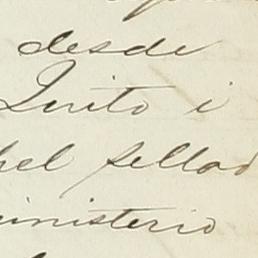 desde
Quito i
pel sellado
ministerio